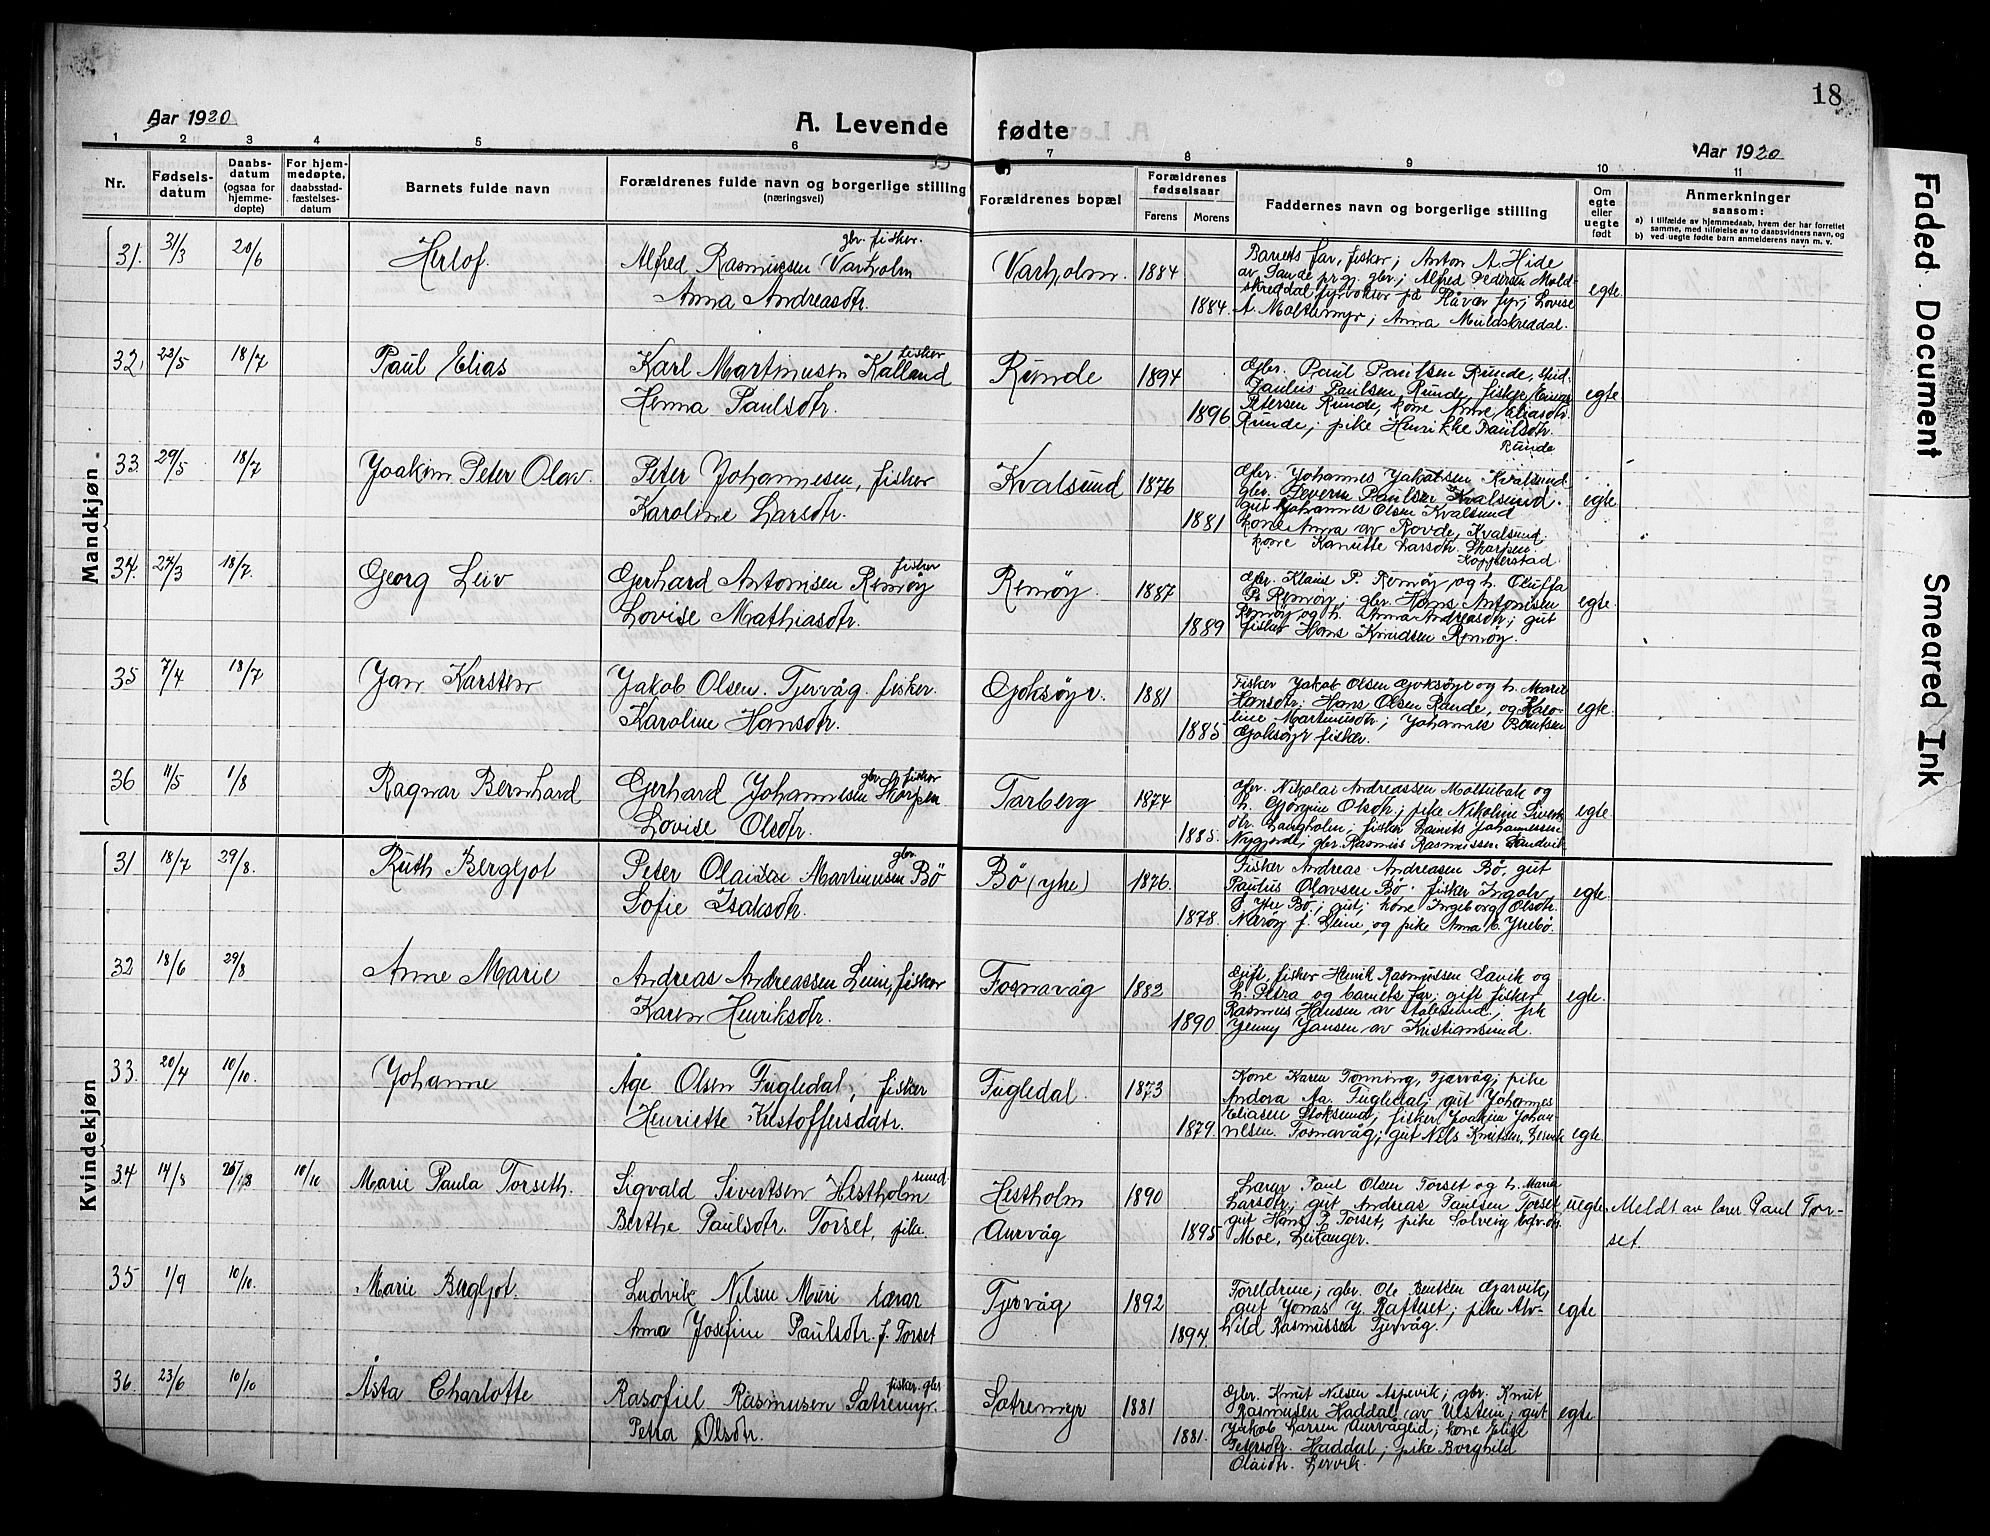 18
Aar 1920
A. Levende fødte
Aar 1920
1 2 3 4 5 6 7 8 9 10 11
Nr.
Fødsels-
datum
Daabs-
datum
(ogsaa for
hjemme-
døpte)
For hjem-
medøpte,
daabsstad-
fæstelses-
datum
Barnets fulde navn
Forældrenes fulde navn og borgerlige stilling
(næringsvei)
Forældrenes bopæl
Forældrenes
fødselsaar
Farens Morens
Faddernes navn og borgerlige stilling
Om
egte
eller
uegte
født
Anmerkninger
saasom:
a) I tilfælde av hjemmedaab, hvem der har forrettet
samme, med tilføielse av to daabsvidners navn, og
b) ved uegte fødte barn anmelderens navn m. v.
Mandkjøn
31. 31/3 20/6 Herlof.
gbr. fisker.
Alfred Rasmussen Varholm
Anna Andreasdtr.
Varholm. 1884
1884.
Barnets far, fisker; Anton A Hide
av Sande prg. gbr.; Alfred Pedersen Muld-
skreddal fyrvokter på Flåvær fyr; Lovise
A. Moltumyr; Anna Muldskreddal.
egte
32. 23/5 18/7 Paul Elias
fisker
Karl Martinusen Kalland
Henna Paulsdtr.
Runde 1894
1896
Gbr. Paul Paulsen Runde, stud.
Paulus Paulsen Runde, fisker Einar
Petersen Runde, kone Anne Eliasdtr.
Runde; pike Henrikke Paulsdtr.
Runde
egte
33. 29/5 18/7 Joakim Peter Olav.
Peter Johannesen, fisker
Karoline Larsdtr.
Kvalsund 1876
1881
Gbr. Johannes Jakobsen Kvalsund
gbr. Severin Paulsen Kvalsund.
gut Johannes Olsen Kvalsund
kone Anna av Rovde, Kvalsund.
kone Kanutte Larsdtr. Skorpen
Kopperstad
egte
34. 27/3 18/7. Georg Leiv
fisker
Gerhard Antonisen Remøy
Lovise Mathiasdtr.
Remøy. 1887
1889
Gbr. Klaus P. Remøy og h. Oluffa
P. Remøy; gbr. Hans Antonisen
Remøy og h. Anna Andreasdtr; gut
fisker Hans Knudsen Remøy.
egte.
35 7/4 18/7 Jan Karsten
Jakob Olsen. Tjervåg. fisker.
Karoline Hansdtr.
Goksøyr. 1881
1885
Fisker Jakob Olsen Goksøyr og h. Marie
Hansdtr; Hans Olsen Runde, og Karo-
line Martinusdtr; Johannes Bentsen
Goksøyr fisker.
egte.
36 11/5 1/8 Ragnar Bernhard
gbr. fisker
Gerhard Johannesen Skorpen
Lovise Olsdtr.
Tarberg 1874
1885.
Gbr. Nikolai Andreassen Moltubak og
h. Gjørgine Olsdtr; pike Nikoline Sivert-
dtr. Langholm; fisker Laurits Johannessen
Nygjerde; gbr. Rasmus Rasmussen Sandvik
egte.
Kvindekjøn
31 18/7 29/8. Ruth Bergljot
gbr.
Peter Olaisen Martinusen Bø
Sofie Isaksdtr.
Bø (ytre) 1876.
1878.
Fisker Andreas Andreasen Bø, gut
Paulus Olavsen Bø. fisker Ingolv
Ytre Bø; gut; kone Ingeborg Olsdtr.
Narøy f. Leine, og pike Anna C. Ytrebø.
egte.
32 18/6 29/8 Anne Marie
Andreas Andreassen Leine, fisker
Karen Henriksdtr.
Fosnavåg 1882
1890
Gift, fisker Henrik Rasmussen Savik og
h. Petra og barnets far; gift fisker
Rasmus Hansen av Ålesund; pk
Jenny Jansen av Kristiansund.
egte.
33. 20/4 10/10. Johanne
Åge Olsen Fugledal, fisker
Henriette Kristoffersdatr.
Fugledal. 1873
1879.
Kone Karen Tonning, Tjervåg; pike
Andora Aa. Fugledal; gut Johannes
Eliasen Stoksund, fisker Joakim Johan-
nesen. Fosnavåg; gut Nils Knutsen, Lervik
egte.
34 14/8 10/10 Marie Paula Torseth.
smed.
Sigvald Sivertsen Hestholm
Berthe Paulsdtr. Torset, pike.
Hestholm
Aurvåg
1890
1895
Lærar Paul Olsen Torset og h. Marie
Larsdtr; gut Andreas Paulsen Torset
gut Hans P. Torset, pike Solveig
Moe, Leikanger.
uegte. Meldt av lærer Paul Tor-
set.
35 1/9 10/10. Marie Bergljot.
Ludvik Nilsen Muri lærar
Anna Josefine Paulsdtr. f. Torset
Tjervåg 1892
1894.
Foreldrene; gbr. Ole Bentsen Gjarvik,
gut Jonas J. Raftset; pike Alv-
hild Rasmussen Tjervåg.
egte
36. 23/6 10/10 Åsta Charlotte
fisker. gbr
Rasofiel Rasmusen Sætremyr.
Petra Olsdtr.
Sætremyr 1881
1881.
Gbr. Knut Nilsen Aspevik; gbr. Knut
Rasmusen Haddal av Ulstein; gut
Jakob Larsen Aurvåglid; kone Elise
Petersdtr. Haddal; pike Borghild
Olaidtr. Lervik.
egte
Faded Document
Smeared Ink